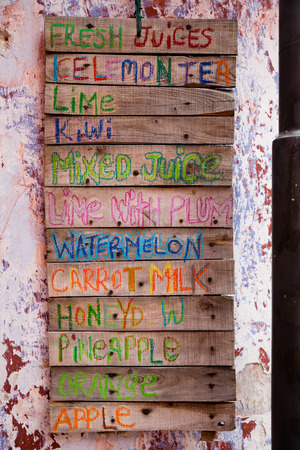 FRESH JUICES
ICELEMON TEA
LIME
KIWI
MIXED JUICE
LIME WITH PLUM
WATERMELON
CARROT MILK
HONEYD W
PINEAPPLE
ORANGE
APPLE